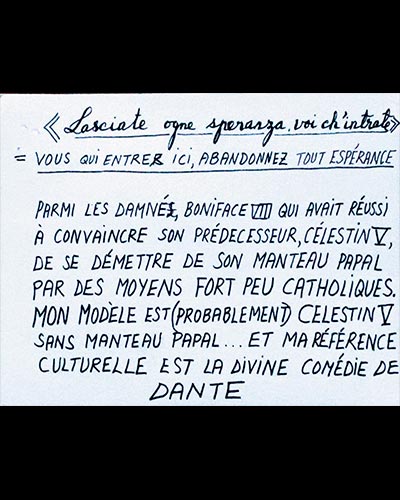 « Lasciate ogne speranza, voi ch'intrate »
= VOUS QUI ENTRER ICI, ABANDONNEZ TOUT ESPÉRANCE
PARMI LES DAMNÉS, BONIFACE VIII QUI AVAIT RÉUSSI
À CONVAINCRE SON PRÉDECESSEUR, CÉLESTIN V,
DE SE DÉMETTRE DE SON MANTEAU PAPAL
PAR DES MOYENS FORT PEU CATHOLIQUES.
MON MODÈLE EST (PROBABLEMENT) CELESTIN V
SANS MANTEAU PAPAL... ET MA RÉFÉRENCE
CULTURELLE EST LA DIVINE COMÉDIE DE
DANTE